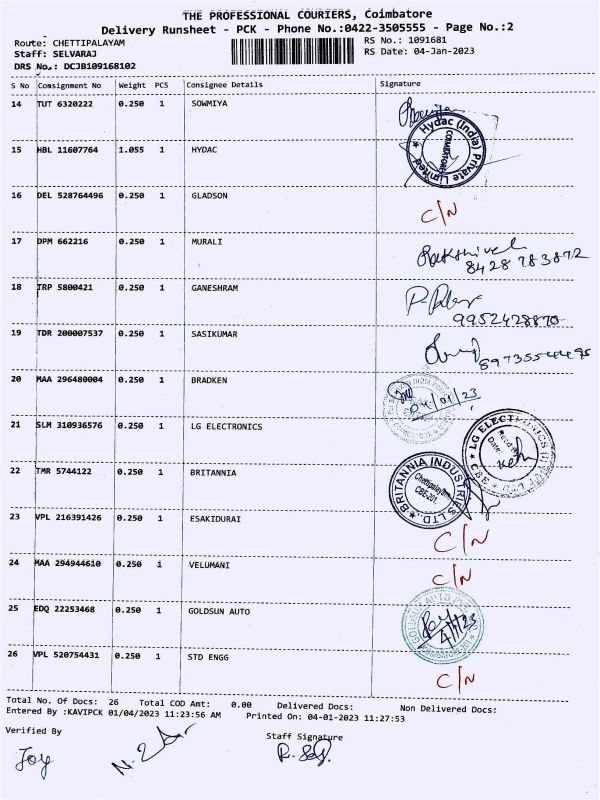 THE PROFESSIONAL COURIERS, Coimbatore
Delivery Runsheet - PCK - Phone No.:0422-3505555 - Page No.:2
Route: CHETTIPALAYAM
RS No.: 1091681
Staff: SELVARAJ
RS Date: 04-Jan-2023
DRS No.: DCJB109168102
S No Comsignment No Weight PCS Consignee Details Signature
14 TUT 6320222 0.250 1 SOWMIYA
15 HBL 11607764 1.055 1 HYDAC
Hydac (India) Private Limited
COIMBATORE
16 DEL 528764496 0.250 1 GLADSON C/N
17 DPM 662216 0.250 1 MURALI
8428783872
18 TRP 5800421 0.250 1 GANESHRAM
9952428870
19 TDR 200007537 0.250 1 SASIKUMAR
20 MAA 296480004 0.250 1 BRADKEN 04/01/23
21 SLM 310936576 0.250 1 LG ELECTRONICS
LG ELECTRONICS
22 TMR 5744122 0.250 1 BRITANNIA
BRITANNIA INDUSTRIES LTD.,
Chettipalayam
CBE-201.
23 VPL 216391426 0.250 1 ESAKIDURAI C/N
24 MAA 294944610 0.250 1 VELUMANI C/N
25 EDQ 22253468 0.250 1 GOLDSUN AUTO
26 VPL 520754431 0.250 1 STD ENGG C/N
Total No. Of Docs: 26 Total COD Amt: 0.00 Delivered Docs: Non Delivered Docs:
Entered By :KAVIPCK 01/04/2023 11:23:56 AM Printed On: 04-01-2023 11:27:53
Verified By Staff Signature
Joy